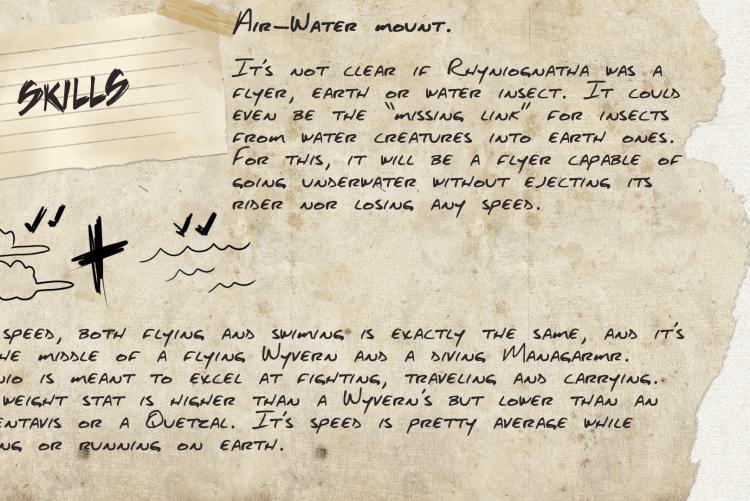 Air-Water mount.
SKILLS
It's not clear if Rhyniognatha was a
flyer, earth or water insect. It could
even be the "missing link" for insects
from water creatures into earth ones.
For this, it will be a flyer capable of
going underwater without ejecting its
rider nor losing any speed.
speed, both flying and swiming is exactly the same, and it's
he middle of a flying Wyvern and a diving Managarmr.
nio is meant to excel at fighting, traveling and carrying.
weight stat is higher than a Wyvern's but lower than an
entavis or a Quetzal. It's speed is pretty average while
ng or running on earth.